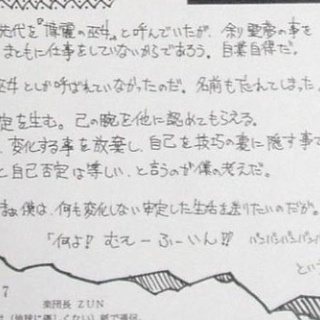 先代を『博麗の巫女』と呼んでいたが、余り霊夢の事を
まともに仕事をしていないからであろう、自業自得だ。
巫女としか呼ばれていなかったのだ。名前も忘れてしまった
定を生む。己の腕を他に認めてもらえる。
、変化する事を放棄し、自己を技巧の裏に隠す事で
と自己否定は等しい、と言うのが僕の考えだ。
まぁ僕は、何も変化しない安定した生活を送りたいのだが。
「何よ!むえーふーいん!!」バンバンバンバン
とい
7
楽団長 ZUN
(地球に優しくない)紙で通信。